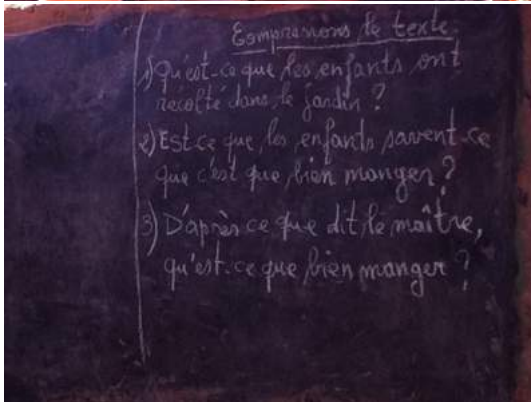 Comprenons le texte
1) Qu'est-ce que les enfants ont
récolté dans le jardin ?
2) Est ce que les enfants savent-ce
que c'est que bien manger ?
3) D'après ce que dit le maître,
qu'est-ce que bien manger ?